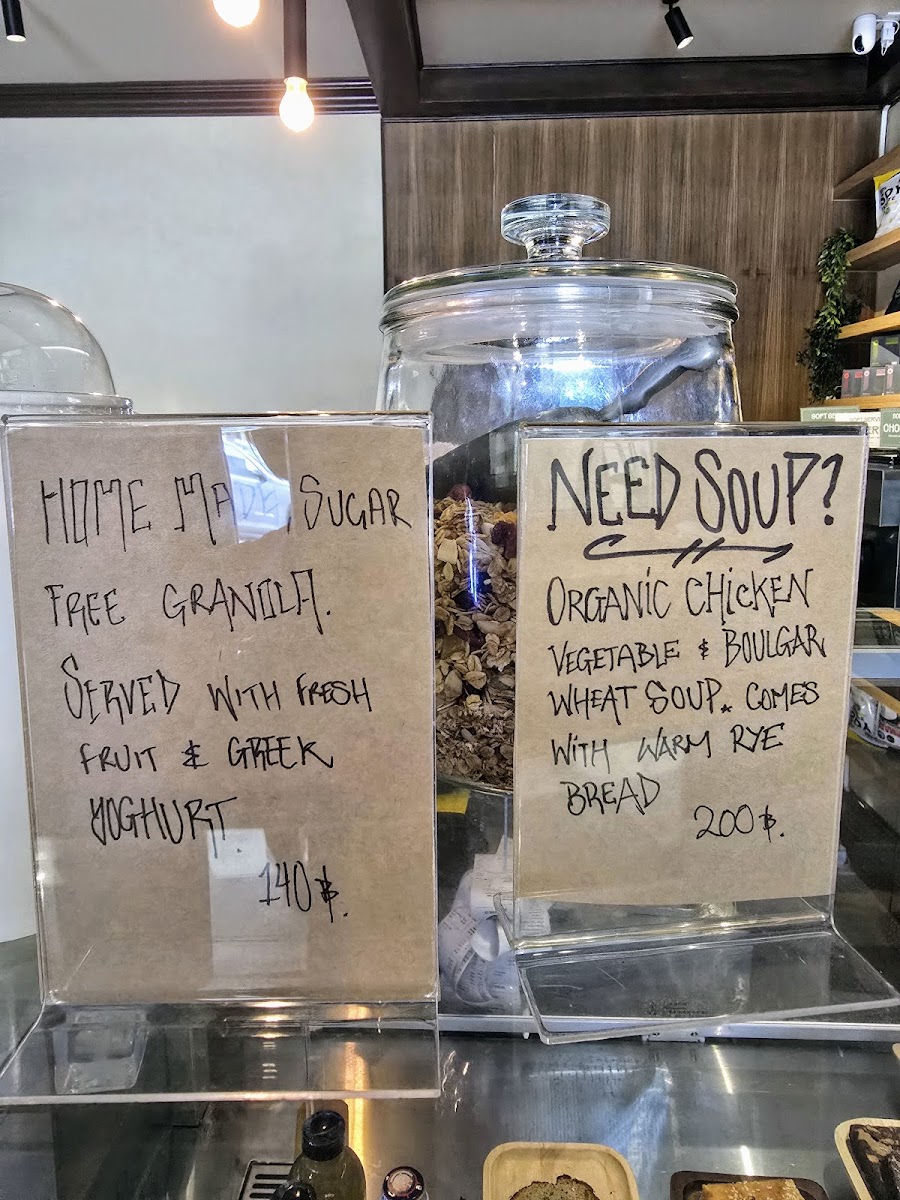 HOME MADE SUGAR
FREE GRANOLA.
SERVED WITH FRESH
FRUIT & GREEK
YOGHURT.
140฿.
NEED SOUP?
ORGANIC CHICKEN
VEGETABLE & BOULGAR
WHEAT SOUP. COMES
WITH WARM RYE
BREAD
200฿.